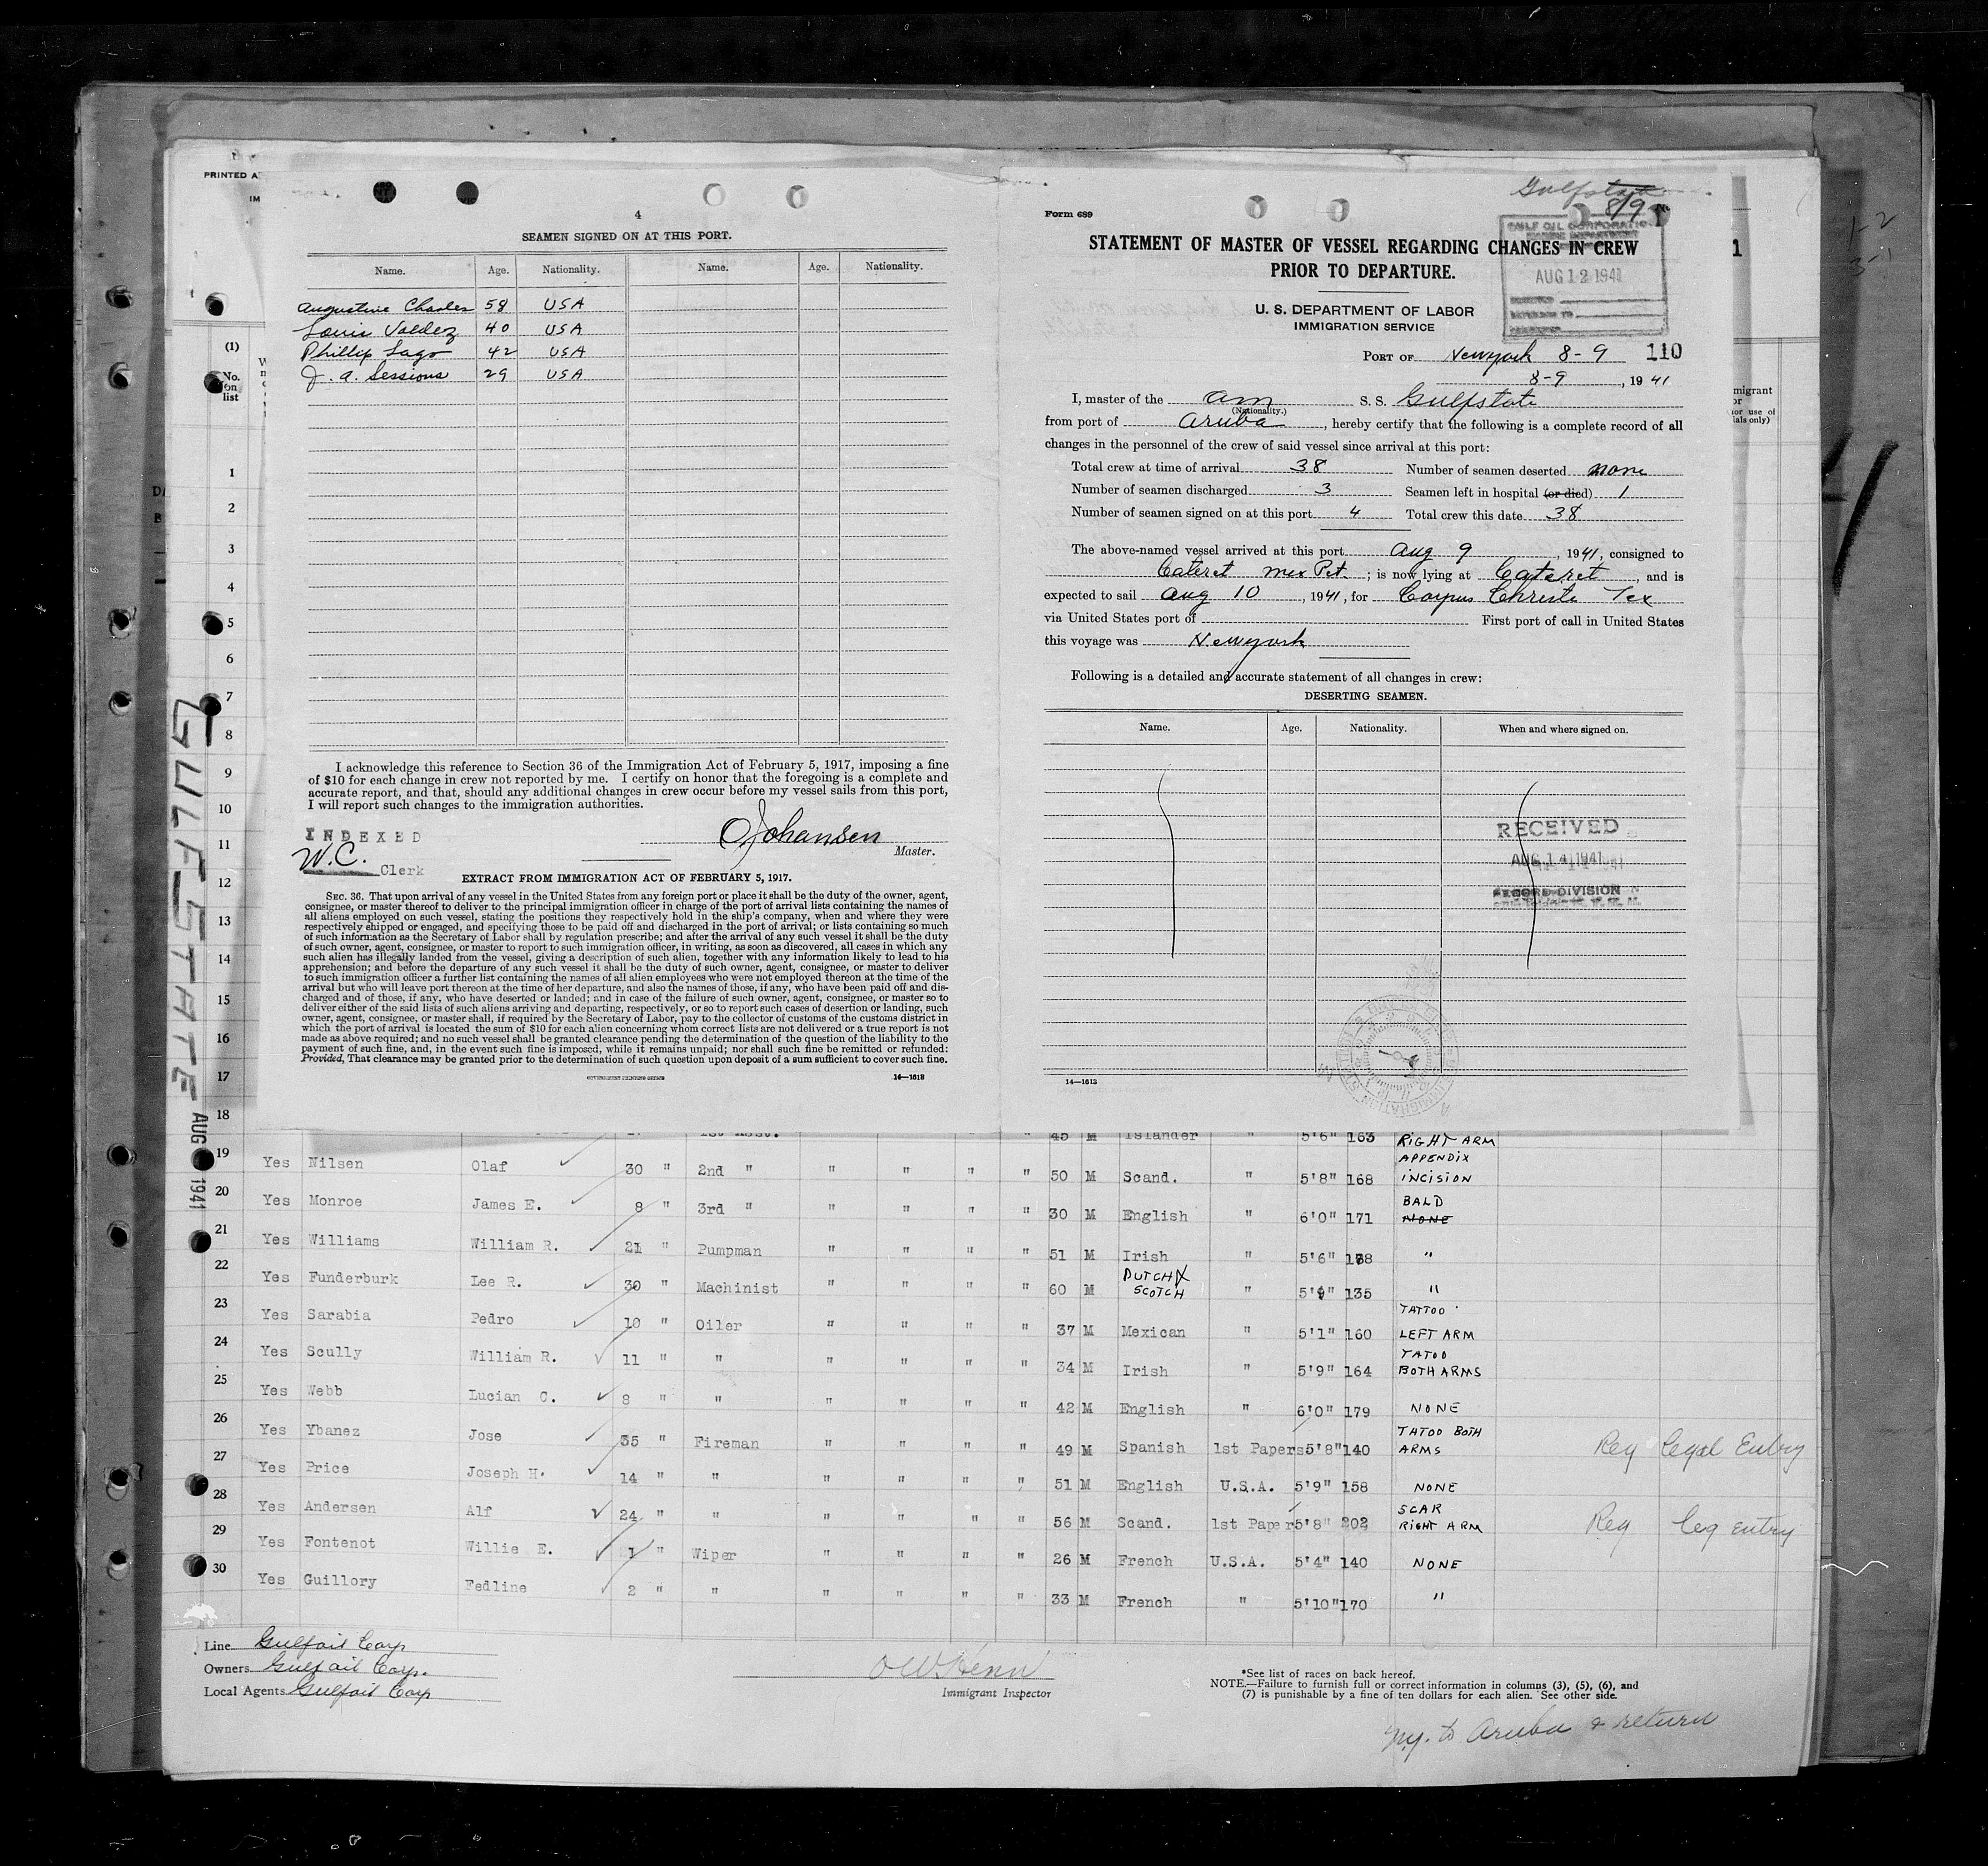 PRINTED A
IM
4
SEAMEN SIGNED ON AT THIS PORT.
Name. Age. Nationality. Name. Age. Nationality.
Augustine Charles 58 USA
Louis Valdez 40 USA
Phillip Lago 42 USA
J. A. Sessions 29 USA
I acknowledge this reference to Section 36 of the Immigration Act of February 5, 1917, imposing a fine
of $10 for each change in crew not reported by me. I certify on honor that the foregoing is a complete and
accurate report, and that, should any additional changes in crew occur before my vessel sails from this port,
I will report such changes to the immigration authorities.
INDEXED
W.C. Clerk
OJohansen
Master.
EXTRACT FROM IMMIGRATION ACT OF FEBRUARY 5, 1917.
SEC. 36. That upon arrival of any vessel in the United States from any foreign port or place it shall be the duty of the owner, agent,
consignee, or master thereof to deliver to the principal immigration officer in charge of the port of arrival lists containing the names of
all aliens employed on such vessel, stating the positions they respectively hold in the ship's company, when and where they were
respectively shipped or engaged, and specifying those to be paid off and discharged in the port of arrival; or lists containing so much
of such information as the Secretary of Labor shall by regulation prescribe; and after the arrival of any such vessel it shall be the duty
of such owner, agent, consignee, or master to report to such immigration officer, in writing, as soon as discovered, all cases in which any
such alien has illegally landed from the vessel, giving a description of such alien, together with any information likely to lead to his
apprehension; and before the departure of any such vessel it shall be the duty of such owner, agent, consignee, or master to deliver
to such immigration officer a further list containing the names of all alien employees who were not employed thereon at the time of the
arrival but who will leave port thereon at the time of her departure, and also the names of those, if any, who have been paid off and dis-
charged and of those, if any, who have deserted or landed; and in case of the failure of such owner, agent, consignee, or master so to
deliver either of the said lists of such aliens arriving and departing, respectively, or so to report such cases of desertion or landing, such
owner, agent, consignee, or master shall, if required by the Secretary of Labor, pay to the collector of customs of the customs district in
which the port of arrival is located the sum of $10 for each alien concerning whom correct lists are not delivered or a true report is not
made as above required; and no such vessel shall be granted clearance pending the determination of the question of the liability to the
payment of such fine, and, in the event such fine is imposed, while it remains unpaid; nor shall such fine be remitted or refunded:
Provided, That clearance may be granted prior to the determination of such question upon deposit of a sum sufficient to cover such fine.
GOVERNMENT PRINTING OFFICE 14—1613
Gulfstate
8/9
Form 689
STATEMENT OF MASTER OF VESSEL REGARDING CHANGES IN CREW
PRIOR TO DEPARTURE.
GULF OIL CORPORATION
AUG 12 1941
U. S. DEPARTMENT OF LABOR
IMMIGRATION SERVICE
PORT OF Newyork 8-9 110
8-9, 1941
I, master of the Am S. S. Gulfstate
(Nationality.)
from port of Aruba, hereby certify that the following is a complete record of all
changes in the personnel of the crew of said vessel since arrival at this port:
Total crew at time of arrival 38 Number of seamen deserted none
Number of seamen discharged 3 Seamen left in hospital (or died) 1
Number of seamen signed on at this port 4 Total crew this date 38
The above-named vessel arrived at this port Aug 9, 1941, consigned to
Cateret Mex Pet.; is now lying at Cateret, and is
expected to sail Aug 10, 1941, for Corpus Christi Tex
via United States port of First port of call in United States
this voyage was Newyork
Following is a detailed and accurate statement of all changes in crew:
DESERTING SEAMEN.
Name. Age. Nationality. When and where signed on.
RECEIVED
AUG 14 1941
RECORD DIVISION
14—1613
(1)
No. on list
migrant
or
or use of
ials only)
1
2
3
4
5
6
7
8
9
10
11
12
13
14
15
16
17
18
GULFSTATE
AUG 1941
45 M Islander " 5'6" 163 RIGHT ARM
19 Yes Nilsen Olaf 30 " 2nd " " " " " 50 M Scand. " 5'8" 168 APPENDIX INCISION
20 Yes Monroe James E. 8 " 3rd " " " " " 30 M English " 6'0" 171 BALD NONE
21 Yes Williams William R. 21 " Pumpman " " " " 51 M Irish " 5'6" 178 "
22 Yes Funderburk Lee R. 30 " Machinist " " " " 60 M DUTCH SCOTCH " 5'4" 135 "
23 Yes Sarabia Pedro 10 " Oiler " " " " 37 M Mexican " 5'1" 160 TATTOO LEFT ARM
24 Yes Scully William R. 11 " " " " " " 34 M Irish " 5'9" 164 TATOO BOTH ARMS
25 Yes Webb Lucian C. 8 " " " " " " 42 M English " 6'0" 179 NONE
26 Yes Ybanez Jose 35 " Fireman " " " " 49 M Spanish 1st Papers 5'8" 140 TATOO BOTH ARMS Reg Legal Entry
27 Yes Price Joseph H. 14 " " " " " " 51 M English U.S.A. 5'9" 158 NONE
28 Yes Andersen Alf 24 " " " " " " 56 M Scand. 1st Paper 5'8" 202 SCAR RIGHT ARM Reg Leg Entry
29 Yes Fontenot Willie E. 1 " Wiper " " " " 26 M French U.S.A. 5'4" 140 NONE
30 Yes Guillory Fedline 2 " " " " " " 33 M French " 5'10" 170 "
Line Gulfoil Corp
Owners Gulfoil Corp.
Local Agents Gulfoil Corp
Immigrant Inspector
*See list of races on back hereof.
NOTE.—Failure to furnish full or correct information in columns (3), (5), (6), and
(7) is punishable by a fine of ten dollars for each alien. See other side.
N.Y. to Aruba & return